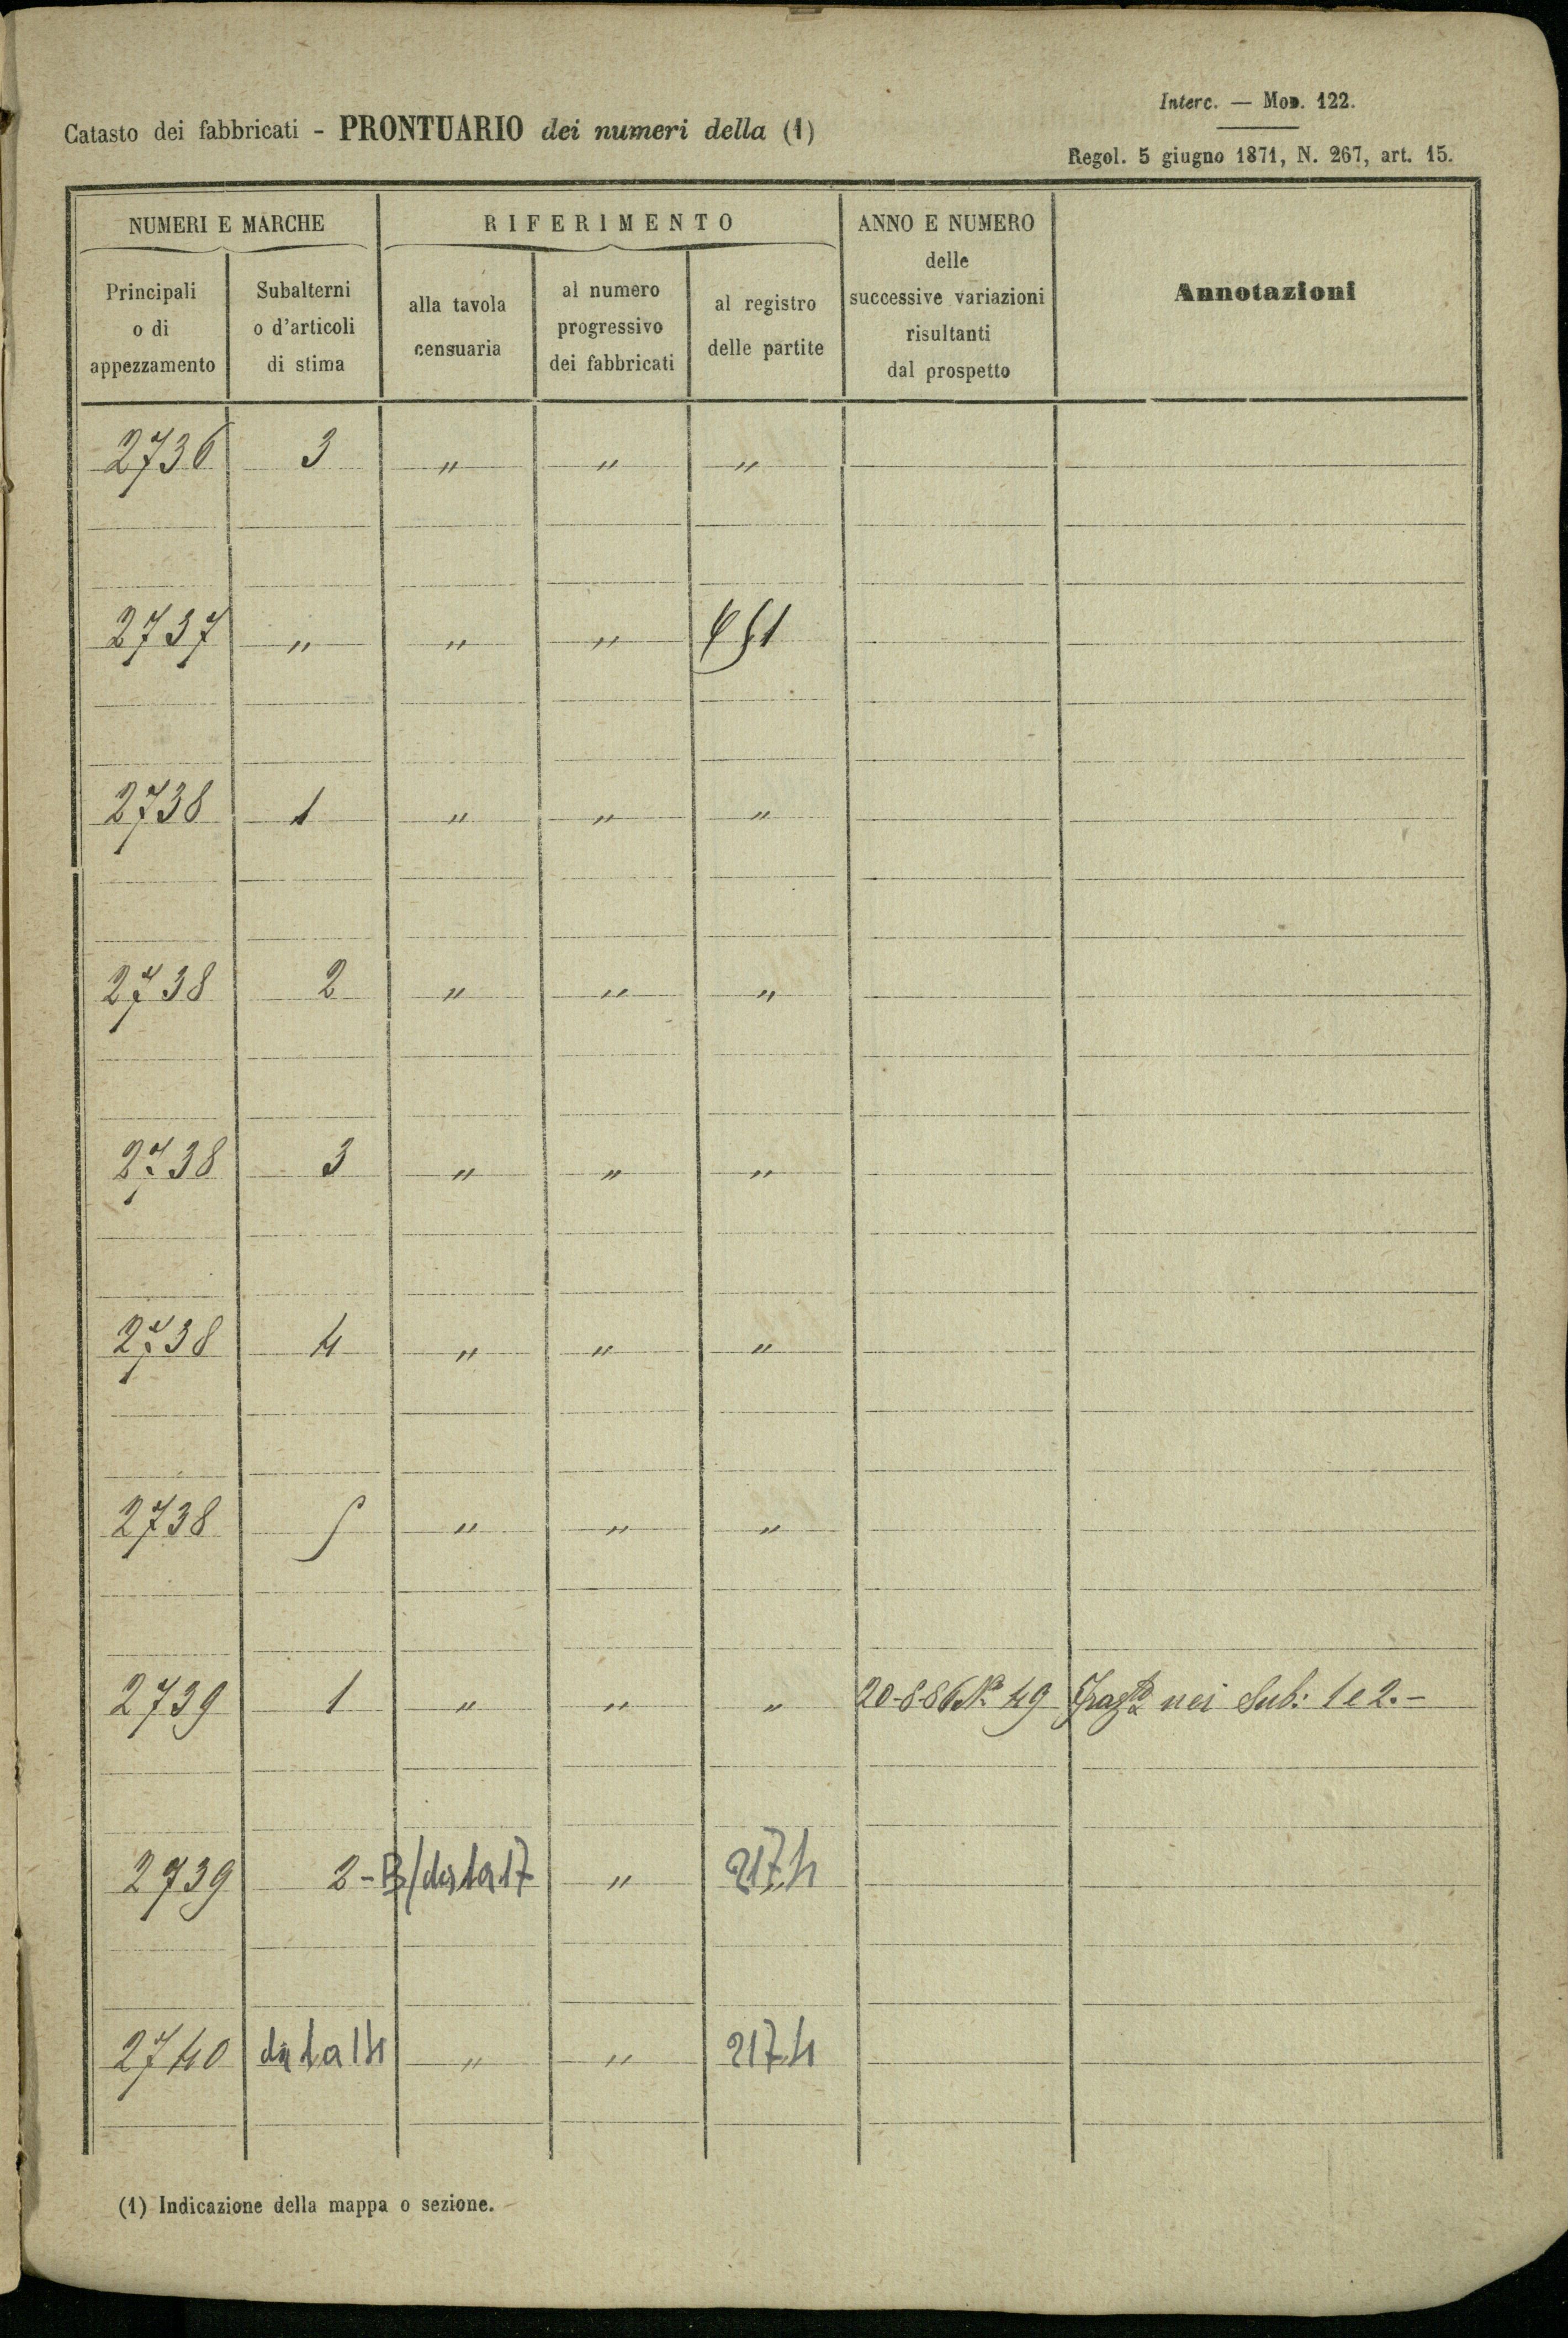 Interc. — Mod. 122.
Catasto dei fabbricati - PRONTUARIO dei numeri della (1)
Regol. 5 giugno 1871, N. 267, art. 15.
NUMERI E MARCHE
RIFERIMENTO
ANNO E NUMERO
delle
successive variazioni
risultanti
dal prospetto
Annotazioni
Principali
o di
appezzamento
Subalterni
o d'articoli
di stima
alla tavola
censuaria
al numero
progressivo
dei fabbricati
al registro
delle partite
2736 3 " " "
2737 " " "
2738 1 " " "
2738 2 " " "
2738 3 " " "
2738 4 " " "
2738 5 " " "
2739 1 " " " 20-8-86 No. 49 nei Sub: 1 e 2.-
2739 2-B/da 1 a 17 " 2174
2740 da 1 a 14 " " 2174
(1) Indicazione della mappa o sezione.